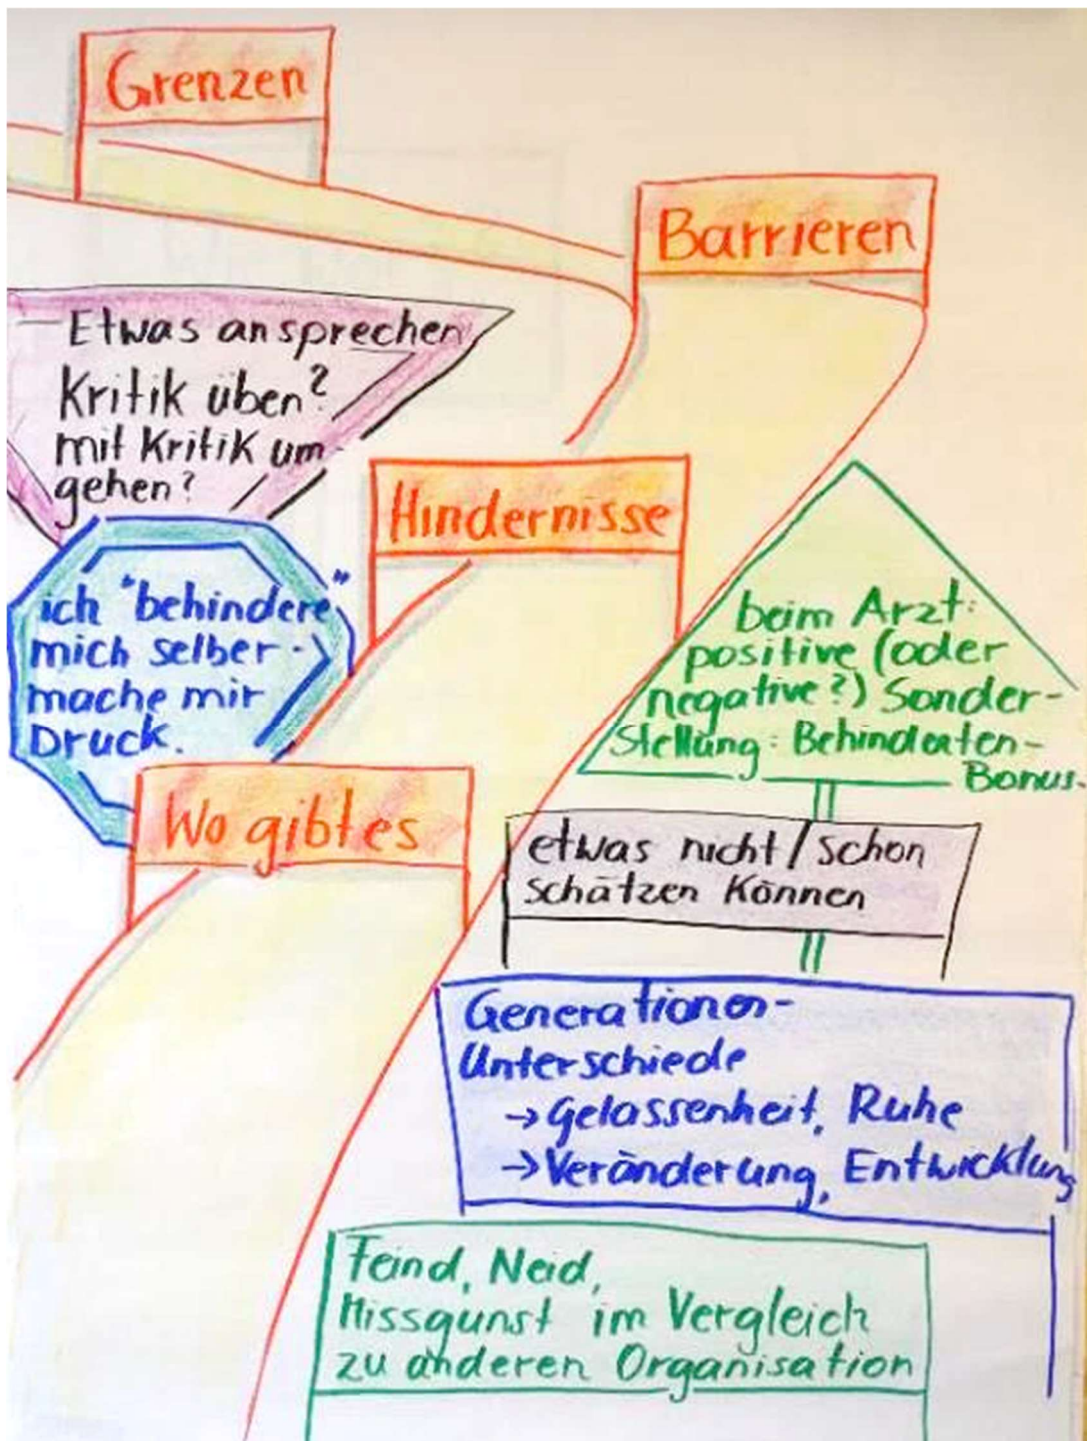 Grenzen
Barrieren
Etwas ansprechen
Kritik üben?
mit Kritik um-
gehen?
Hindernisse
ich "behindere"
mich selber ->
mache mir
Druck.
beim Arzt:
positive (oder
negative?) Sonder-
stellung: Behinderten-
Bonus.
Wo gibt es
etwas nicht / schon
schätzen können
Generationen-
Unterschiede
→ Gelassenheit, Ruhe
→ Veränderung, Entwicklung
Feind, Neid,
Missgunst im Vergleich
zu anderen Organisation